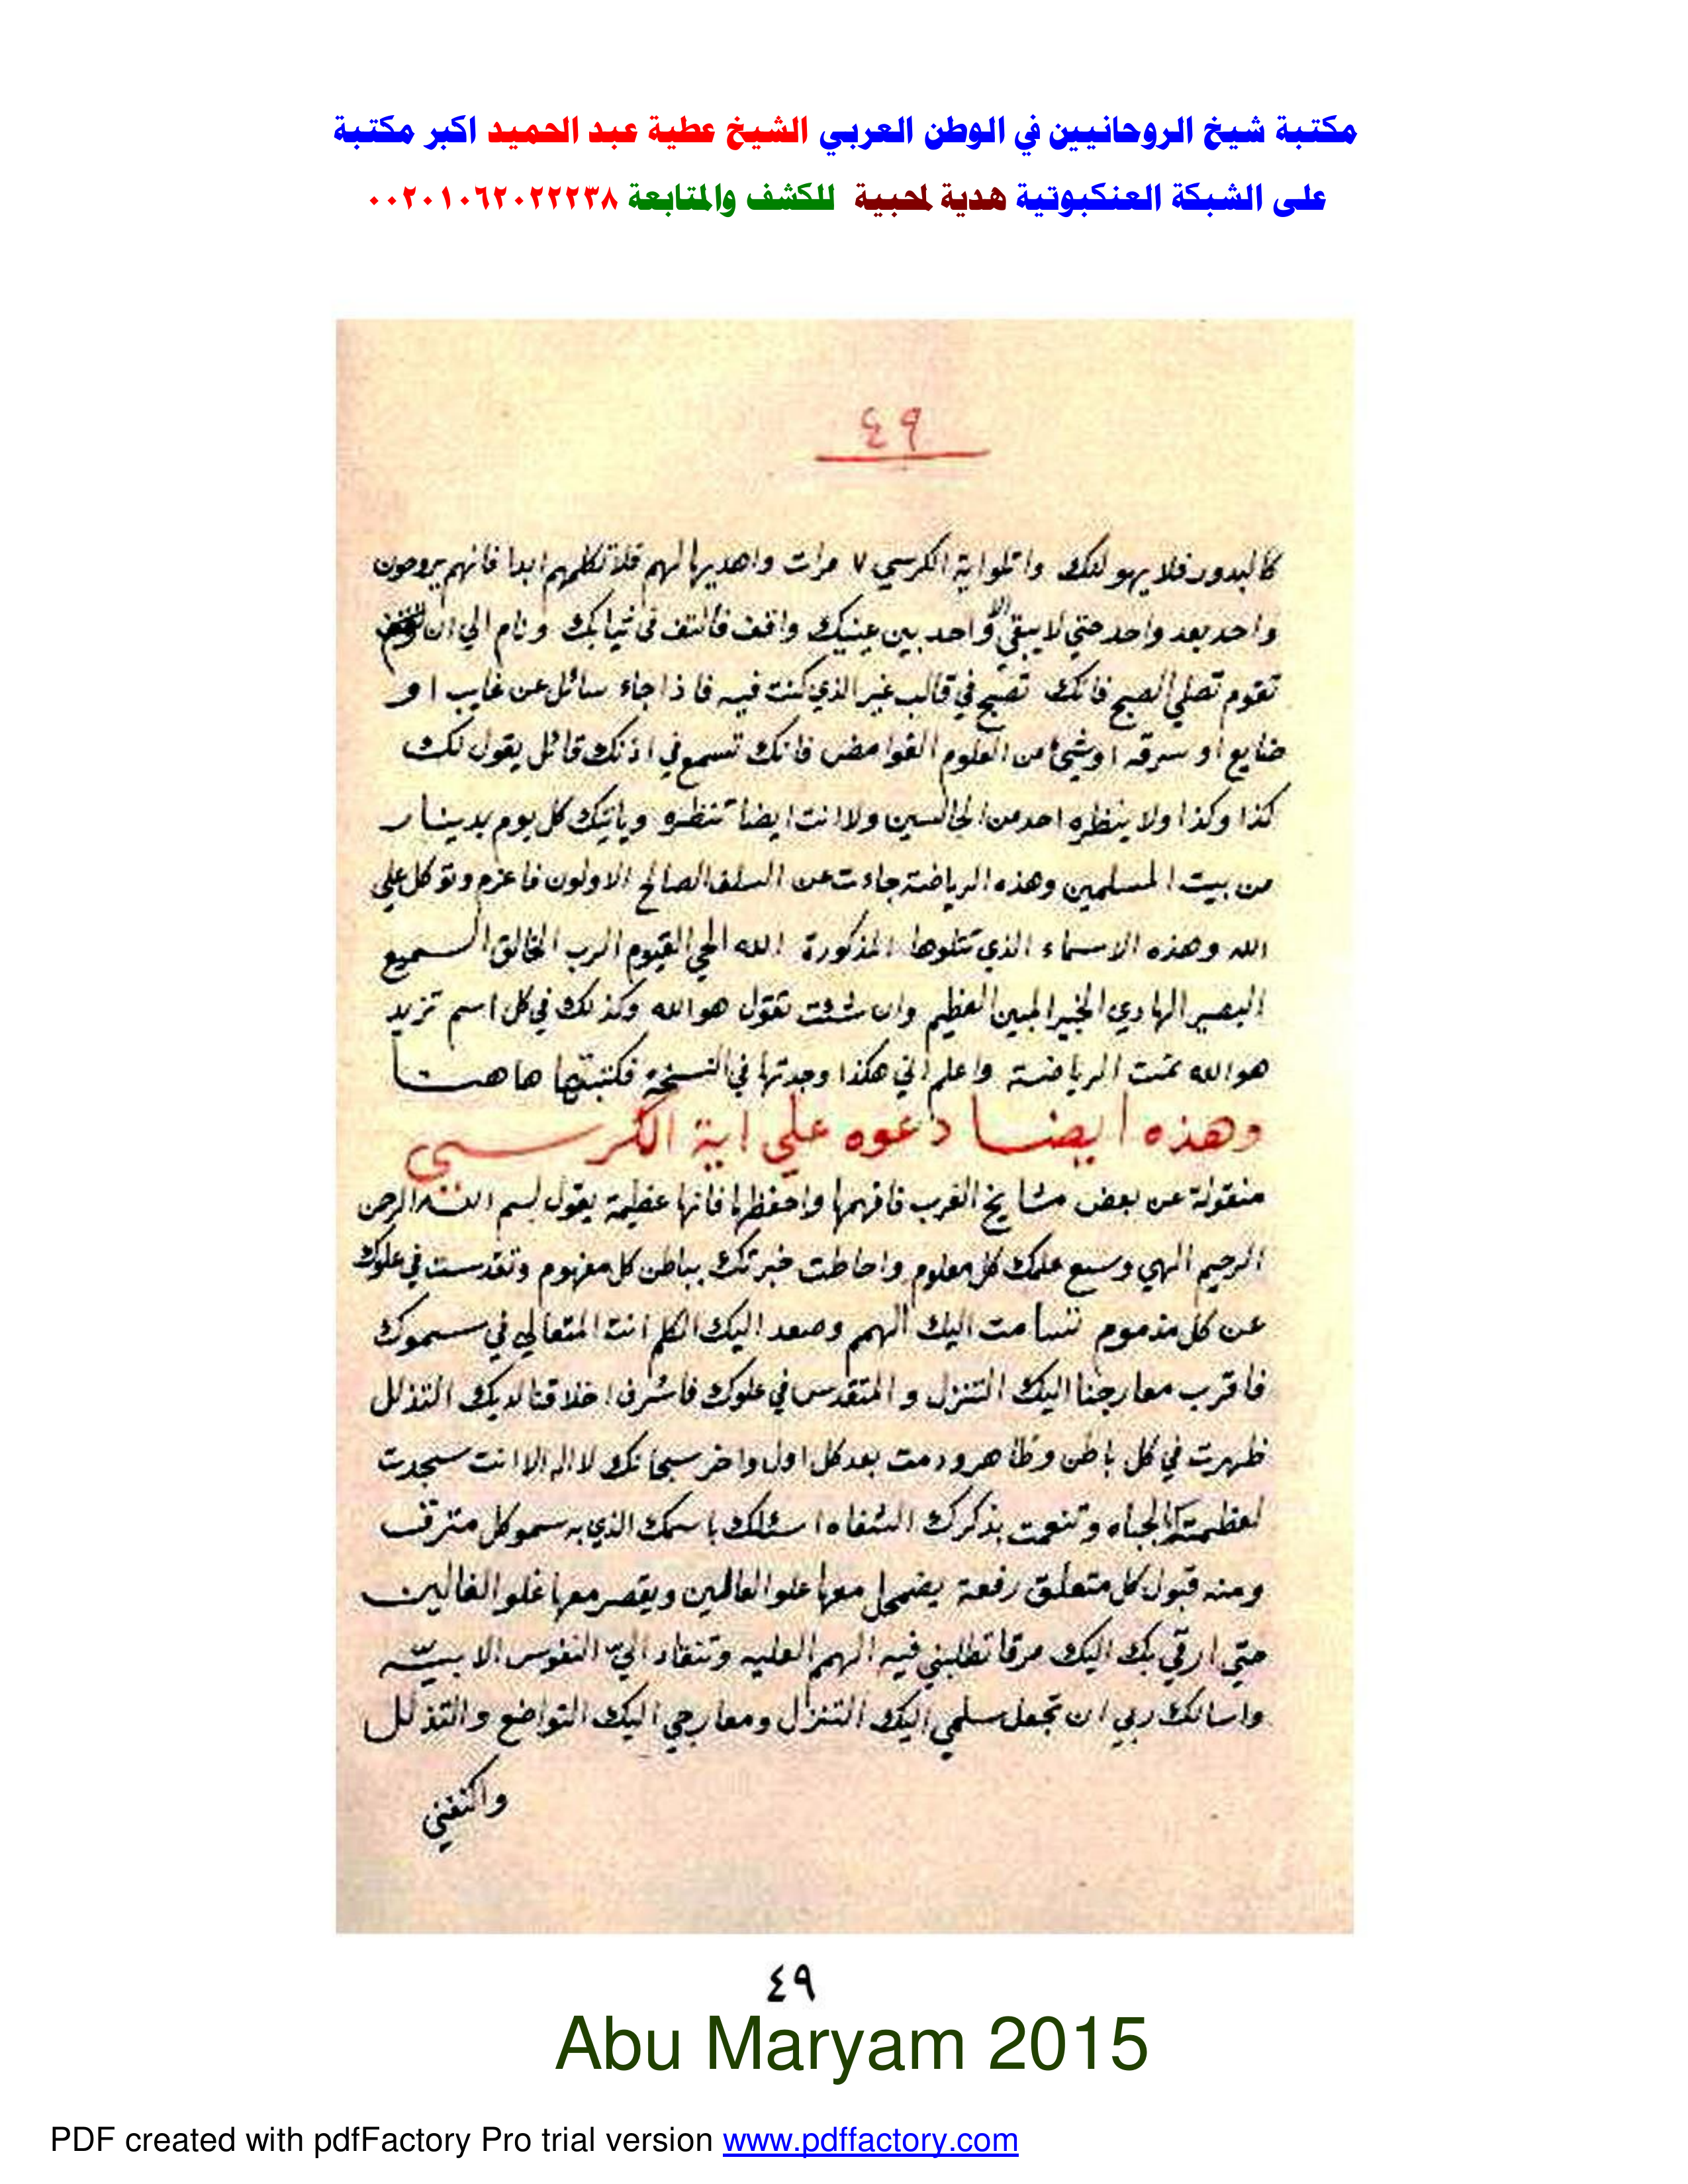 مكتبة شيخ الروحانيين في الوطن العربي الشيخ عطية عبد الحميد اكبر مكتبة
على الشبكة العنكبوتية هدية لمحبية للكشف والمتابعة ٠٠٢٠١٠٦٢٠٢٢٢٣٨
٤٩
كالبدور فلا يهولنك واتلوا اية الكرسي ٧ مرات واهديها لهم فلا تكلمهم ابدا فانهم يروحون
واحد بعد واحد حتي لا يبقي الا واحد بين عينيك واقف فالتف في ثيابك ونام الي ان
تقوم تصلي الصبح فانك تصبح في قالب غير الذي كنت فيه فاذا جاء سائل عن غايب او
ضايع او سرقه او شيئ من العلوم الغوامض فانك تسمع في اذنك قائل يقول لك
كذا وكذا ولا ينظره احد من الجالسين ولا انت ايضا تنظره وياتيك كل يوم بدينار
من بيت المسلمين وهذه الرياضة جاءت عن السلف الصالح الاولون فاعزم وتوكل علي
الله وهذه الاسماء الذي تتلوها المذكورة الله الحي القيوم الرب الخالق السميع
البصير الهادي الخبير المبين العظيم وان شئت تقول هو الله وكذلك في كل اسم تزيد
هو الله تمت الرياضة واعلم اني هكذا وجدتها في النسخة فكتبتها هاهنا
وهذه ايضا دعوه علي اية الكرسي
منقولة عن بعض مشايخ الغرب فافهمها واحفظها فانها عظيمة يقول بسم الله الرحمن
الرحيم الهي وسع علمك كل معلوم واحاطت خبرتك بباطن كل مفهوم وتقدست في علوك
عن كل مذموم تسامت اليك الهمم وصعد اليك الكلم انت المتعالي في سموك
فاقرب معارجنا اليك التنزل والمتقدس في علوك فاشرف اخلاقنا لديك التذلل
ظهرت في كل باطن وظاهر ودمت بعد كل اول واخر سبحانك لا اله الا انت سجدت
لعظمتك الجباه وتنعمت بذكرك الشفاه اسئلك باسمك الذي به سمو كل مترقب
ومنه قبول كل متعلق رفعة يضمحل معها علو العالمين ويقصر معها غلو الغالين
حتي ارقي بك اليك مرقا تطلبني فيه الهمم العليه وتنقاد اليّ النفوس الابيّه
واسالك ربي ان تجعل سلمي اليك التنزل ومعارجي اليك التواضع والتذلل
واكنفني
٤٩
Abu Maryam 2015
PDF created with pdfFactory Pro trial version www.pdffactory.com